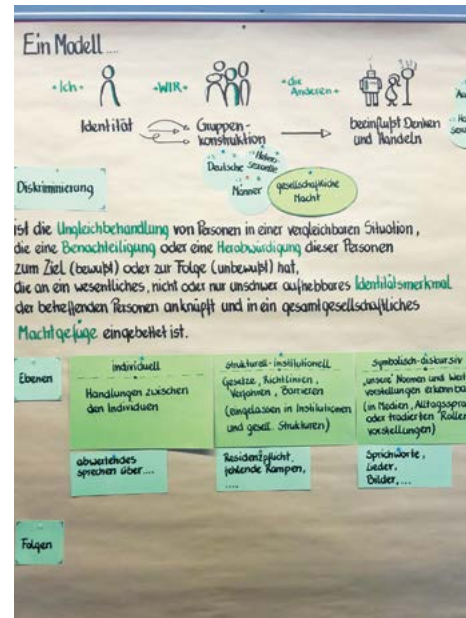 Ein Modell ....
•Ich• •WIR• •die Anderen•
Identität Gruppen-konstruktion beeinflußt Denken und Handeln
Deutsche Hetero-sexuelle
Männer gesellschaftliche Macht
Diskriminierung
ist die Ungleichbehandlung von Personen in einer vergleichbaren Situation,
die eine Benachteiligung oder eine Herabwürdigung dieser Personen
zum Ziel (bewußt) oder zur Folge (unbewußt) hat,
die an ein wesentliches, nicht oder nur unschwer aufhebbares Identitätsmerkmal
der betreffenden Personen anknüpft und in ein gesamtgesellschaftliches
Machtgefüge eingebettet ist.
Ebenen
individuell
Handlungen zwischen
den Individuen
strukturell-institutionell
Gesetze, Richtlinien,
Verfahren, Barrieren
(eingelassen in Institutionen
und gesell. Strukturen)
symbolisch-diskursiv
„unsere" Normen und Wert
vorstellungen erkennba
(in Medien, Alltagsspra
oder tradierten Rollen
vorstellungen)
abwertendes
sprechen über....
Residenzpflicht,
fehlende Rampen,
....
Sprichworte,
Lieder,
Bilder,...
Folgen